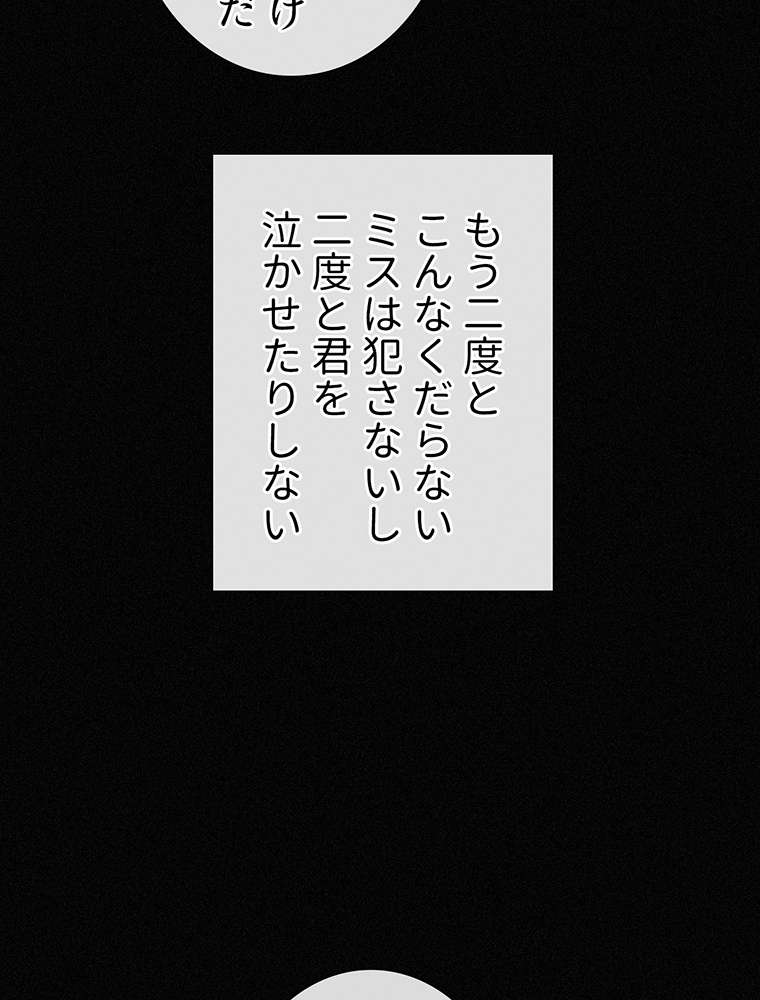 け
だ
もう二度と
こんなくだらない
ミスは犯さないし
二度と君を
泣かせたりしない